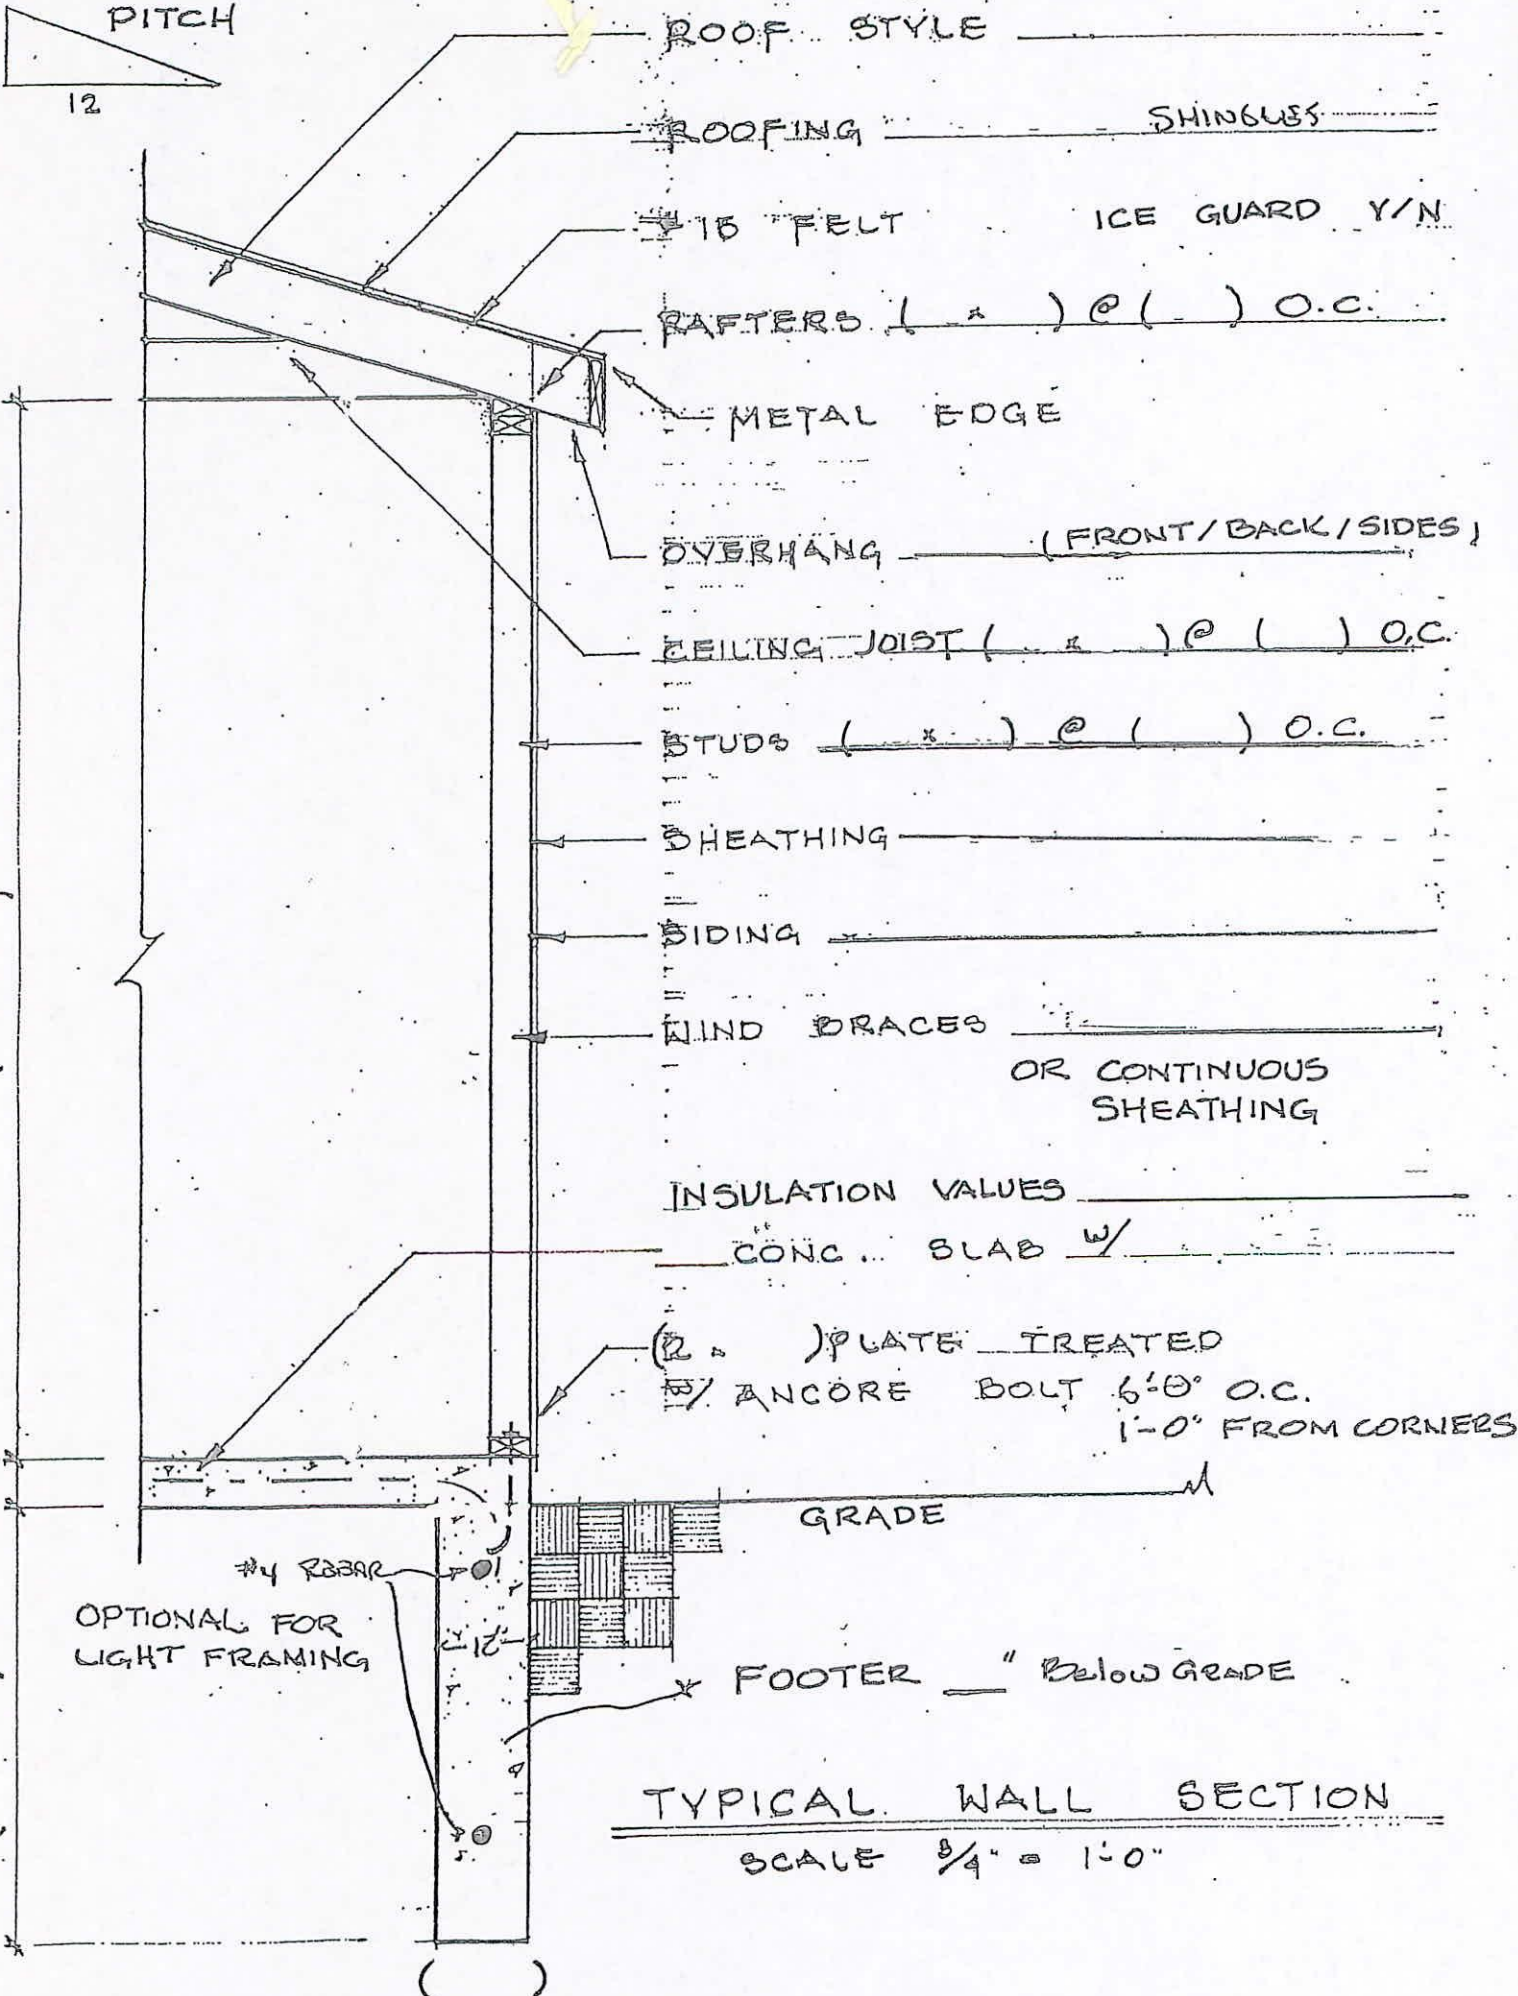 PITCH
12
ROOF STYLE
ROOFING SHINGLES
#15 FELT ICE GUARD Y/N
RAFTERS ( x ) @ ( ) O.C.
METAL EDGE
OVERHANG (FRONT/BACK/SIDES)
CEILING JOIST ( x ) @ ( ) O.C.
STUDS ( x ) @ ( ) O.C.
SHEATHING
SIDING
WIND BRACES
OR CONTINUOUS
SHEATHING
INSULATION VALUES
" CONC. SLAB W/
(2 x ) PLATE TREATED
W/ ANCORE BOLT 6'-0" O.C.
1'-0" FROM CORNERS
GRADE
#4 REBAR
OPTIONAL FOR
LIGHT FRAMING
12"
* FOOTER __" Below GRADE
TYPICAL WALL SECTION
SCALE 3/4" = 1'-0"
( )